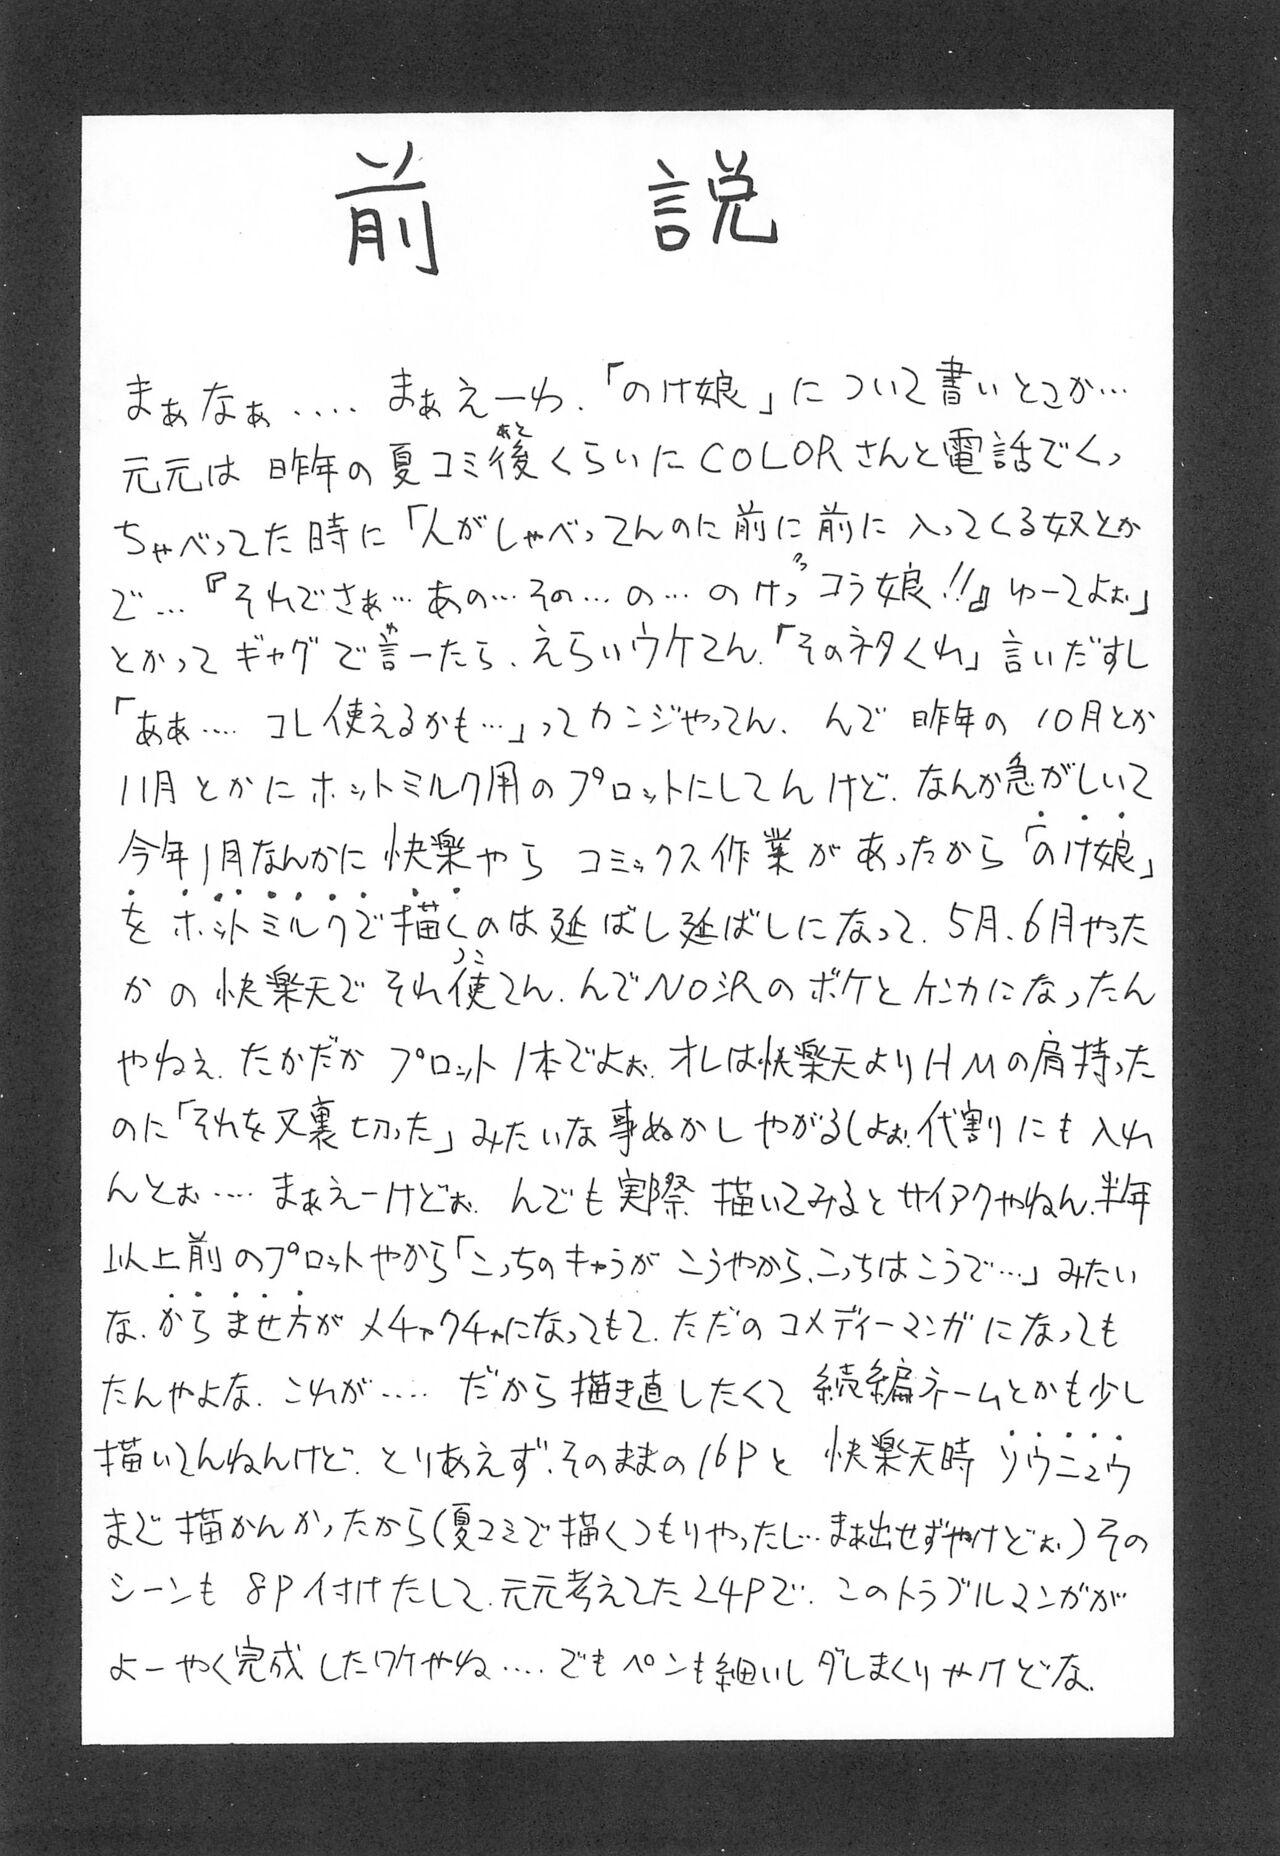 前説
まぁなぁ.... まぁえーわ.「のけ娘」について書いとこか…
元元は昨年の夏コミ後くらいにCOLORさんと電話でくっ
あと
ちゃべってた時に「人がしゃべってんのに前に前に入ってくる奴とか
で…『それでさぁ…あの…その…の…のけっコラ娘!!』ゆーてよぉ」
とかってギャグで言ーたら、えらいウケてん.「そのネタくれ」言いだすし
「あぁ.... コレ使えるかも…」ってカンジやってん. んで昨年の10月とか
11月とかにホットミルク用のプロットにしてんけど. なんか急がしいて
今年1月なんかに快楽やらコミックス作業があったから「のけ娘」
をホットミルクで描くのは延ばし延ばしになって. 5月、6月やった
かの快楽天でそれ使てん. んでNO沢のボケとケンカになったん
つこ
やねぇ. たかだかプロット1本でよぉ. オレは快楽天よりHMの肩持った
のに「それを又裏切った」みたいな事ぬかしやがるしよぉ. 代割りにも入れ
んとぉ.... まぁえーけどぉ. んでも実際描いてみるとサイアクやねん. 半年
以上前のプロットやから「こっちのキャラがこうやから、こっちはこうで…」みたい
な. からませ方がメチャクチャになってもて. ただのコメディーマンガになっても
たんやよな. これが.... だから描き直したくて続編ネームとかも少し
描いてんねんけど. とりあえず、そのままの16Pと快楽天時ソウニュウ
まで描かんかったから(夏コミで描くつもりやったし…まぁ出せずやけどぉ.)その
シーンも8P付けたして. 元元考えてた24Pで. このトラブルマンガが
よーやく完成したワケやね.... でもペンも細いしダしまくりやけどな.